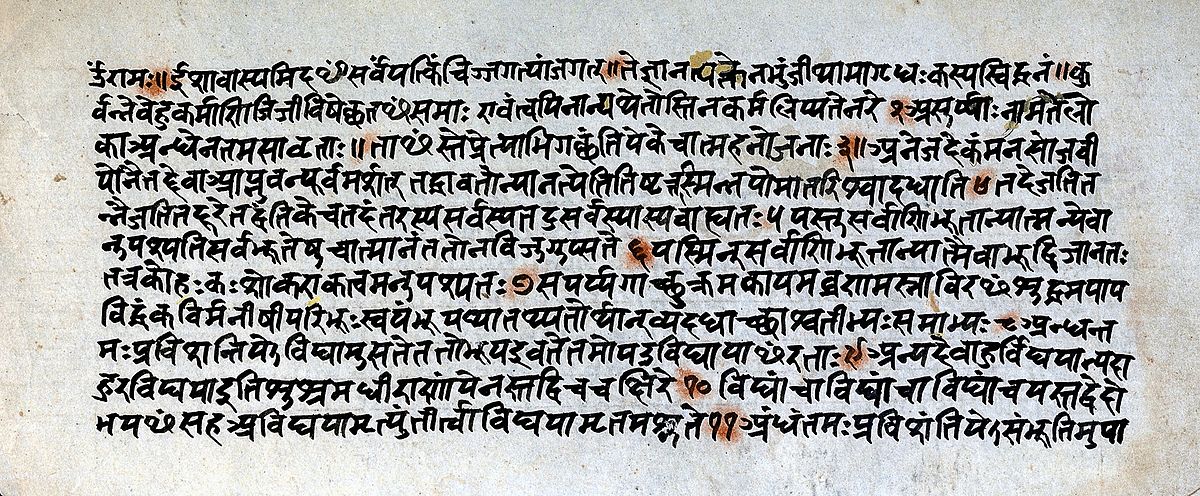 ॐरामः॥ईशावास्यमिद ꣳ सर्वंयत्किंचिज्जगत्यांजगत्॥तेनत्यक्तेनभुंजीथामागृधःकस्यस्विद्धनं॥कु
र्वन्नेवेहकर्माणिजिजीविषेछत ꣳ समाः एवंत्वयिनान्यथेतोस्तिनकर्मलिप्यतेनरे २असूर्य्याःनामतेलो
काअन्धेनतमसावृताः॥ता ꣳ स्तेप्रेत्याभिगछंतियेकेचात्महनोजनाः ३॥अनेजदेकंमनसोजवी
योनैनदेवाआप्नुवन्पूर्वमर्शत् तद्धावतोन्यानत्येतितिष्टत्तस्मिन्नपोमातरिश्वादधाति ४ तदेजतित
न्नैजतितदूरेतद्वंतिकेचतदंतरस्यसर्वस्यतदुसर्वस्यास्यवाह्यतः ५ यस्तुसर्वाणिभूतान्यात्मन्येवा
नुपश्यतिसर्वभूतेषुचात्मानंततोनविजुगुप्सते ६ यस्मिन्सर्वाणिभूतान्यात्मैवाभूद्विजानतः
तत्रकोहःकःशोकएकत्वमनुपश्यतः ७ सपर्य्यगाच्छुक्रमकायमव्रणमस्नाविर ꣳ शुद्धमपाप
विद्धंकविर्मनीषीपरिभूःस्वयंभूयथातथ्यतोर्थान्व्यदधाच्छाश्वतीभ्यःसमाभ्यः ८अन्धन्त
मःप्रविशन्तियेऽविद्यामुपासतेततोभूयइवतेतमोयउविद्याया ꣳ रताः ९अन्यदेवाहुर्विद्ययान्यदा
हुरविद्ययाइतिशुश्रुमधीराणांयेनस्तद्विचचक्षिरे १० विद्यांचाविद्यांचाविद्यांचयस्तद्वेदो
भय ꣳ सहअविद्ययामृत्युंतीर्त्वाविद्ययामृतमश्नुते ११अंधंतमःप्रविशंतियेऽसंभूतिमुपा